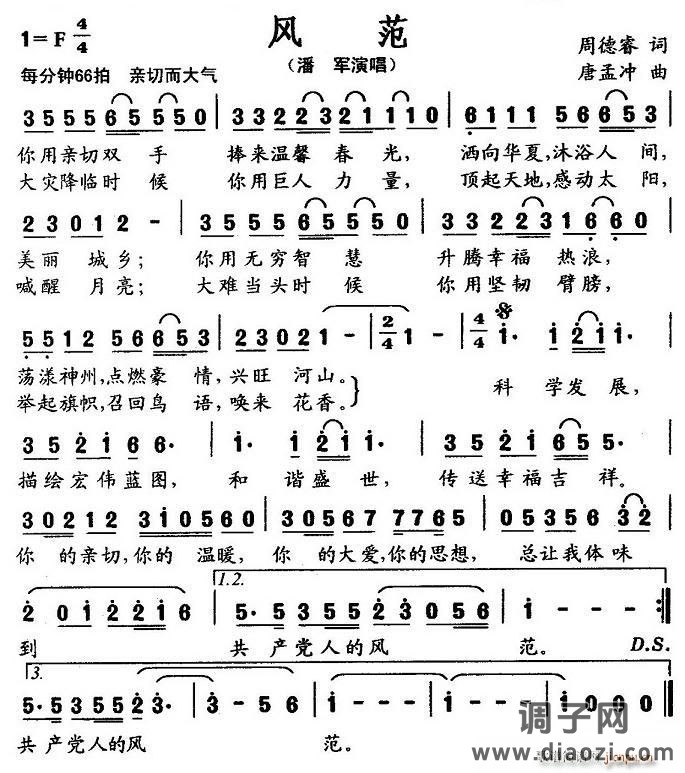 风 范
1=F 4/4
(潘 军演唱)
周德睿 词
每分钟66拍 亲切而大气
唐孟冲 曲
3555655550 | 332223211110 | 6111156653
你用亲切双手 捧来温馨春光, 洒向华夏,沐浴人间,
大灾降临时候 你用巨人力量, 顶起天地,感动太阳,
23012 - | 3555655550 | 3322231660
美丽城乡; 你用无穷智慧 升腾幸福热浪,
喊醒月亮; 大难当头时候 你用坚韧臂膀,
551256653 | 23021 - | 2/4 1 - | 4/4 1· 1211
荡漾神州,点燃豪情,兴旺河山。 科学发展,
举起旗帜,召回鸟语,唤来花香。
352166· | 1· 1211· | 35216555·
描绘宏伟蓝图, 和谐盛世, 传送幸福吉祥。
3021231 0560 | 3056777 65 | 05356032
你的亲切,你的温暖, 你的大爱,你的思想, 总让我体味
2 012216 | 1.2. 5·3552 3056 | 1 - - - :||
到 共产党人的风 范。 D.S.
3.
5·535523· | 3 - 56 | 1 - - - | 1 - - - | 1000 ||
共产党人的风 范。
调子网
www.diaozi.com